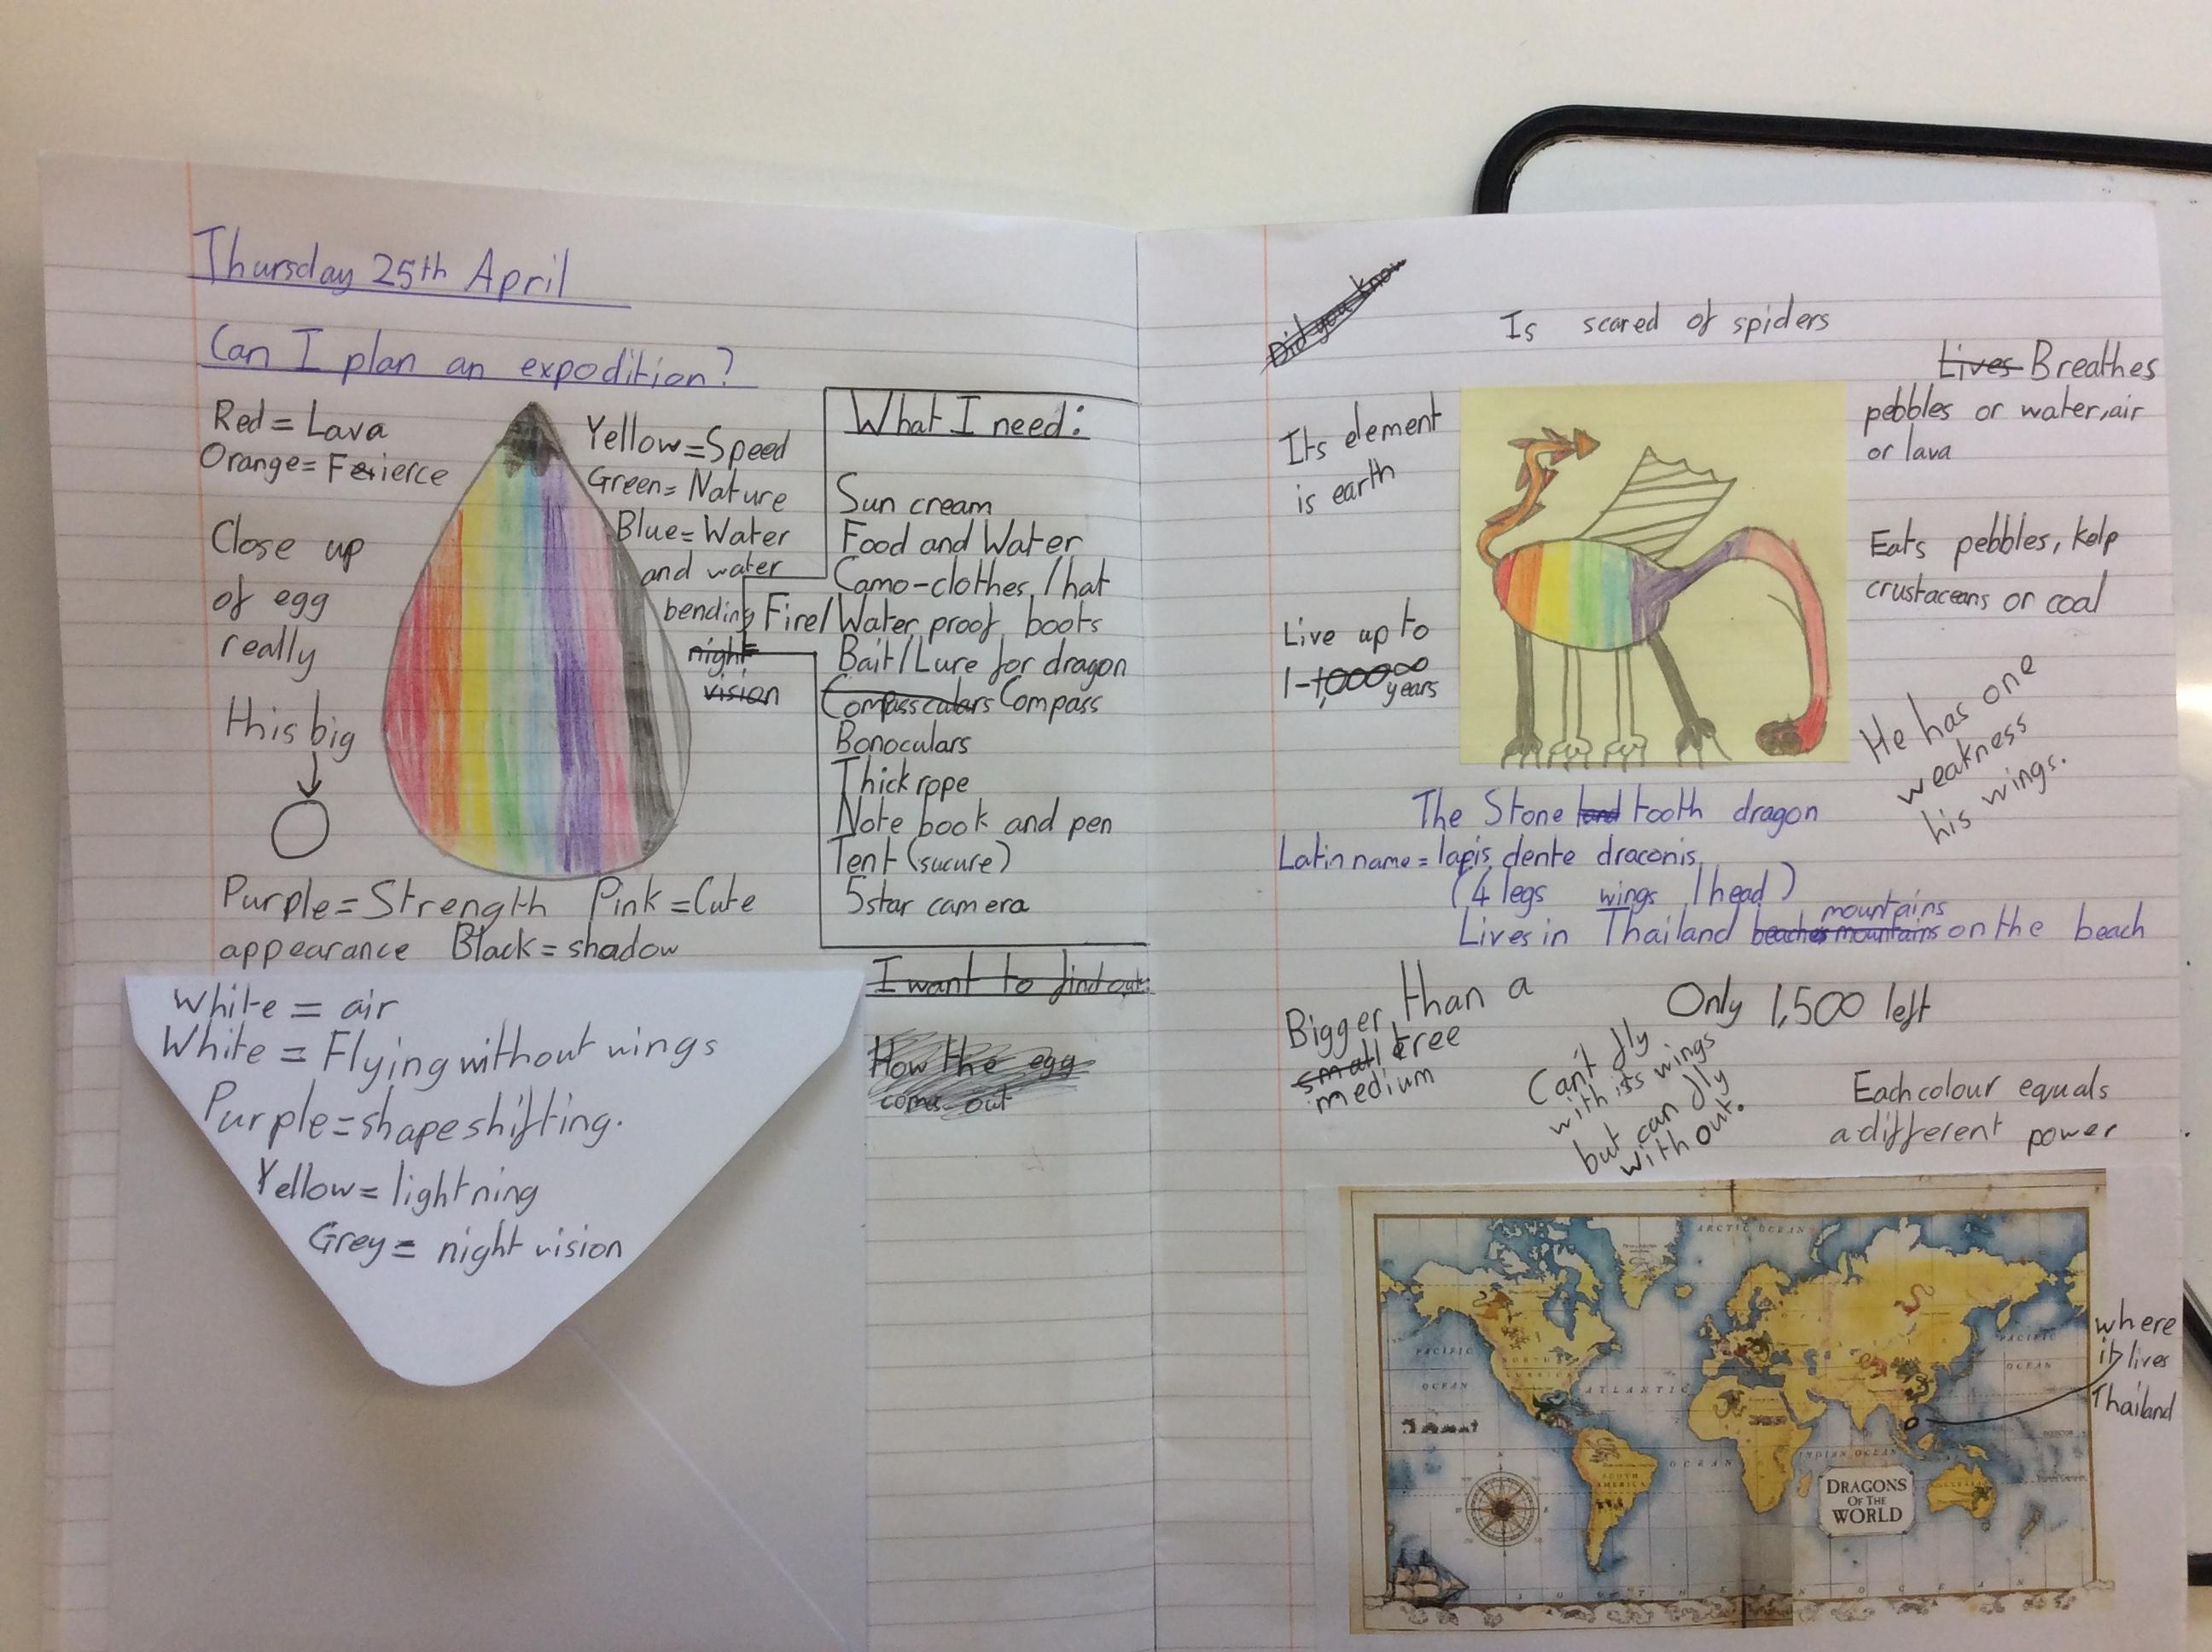 Thursday 25th April
Can I plan an expodition?
Red = Lava
Orange = Feirierce
Close up
of egg
really
this big
Yellow = Speed
Green = Nature
Blue = Water
and water
bending
night
vision
Purple = Strength Pink = Cute
appearance Black = shadow
White = air
White = Flying without wings
Purple = shapeshifting.
Yellow = lightning
Grey = night vision
What I need:
Sun cream
Food and Water
Camo-clothes/hat
Fire/Water proof boots
Bait/Lure for dragon
Compassculars Compass
Bonoculars
Thick rope
Note book and pen
Tent (sucure)
5star camera
I want to find out:
How the egg
come out
Did you know
Is scared of spiders
Its element
is earth
Live up to
1-1,0000
years
Lives Breathes
pebbles or water, air
or lava
Eats pebbles, kelp
crustaceans or coal
He has one
weakness
his wings.
The Stone tooth dragon
Latin name = lapis dente draconis
(4 legs wings 1 head)
mountains
Lives in Thailand beaches mountains on the beach
Bigger than a
small tree
medium
Can't fly
with its wings
but can fly
with out.
Only 1,500 left
Each colour equals
a different power
where
it lives
Thailand
ARCTIC OCEAN
PACIFIC
OCEAN
NORTH
AMERICA
ATLANTIC
OCEAN
PACIFIC
OCEAN
INDIAN OCEAN
SOUTH
AMERICA
DRAGONS
OF THE
WORLD
SOUTHERN OCEAN